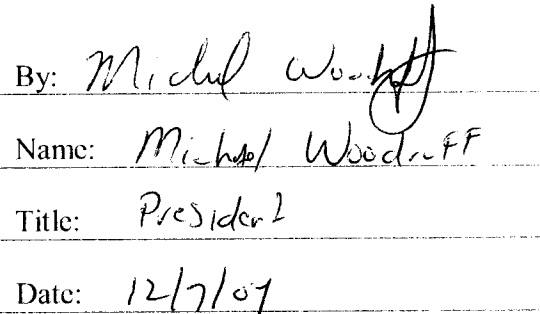 By: Michael Woodruff
Name: Michael Woodruff
Title: President
Date: 12/7/07